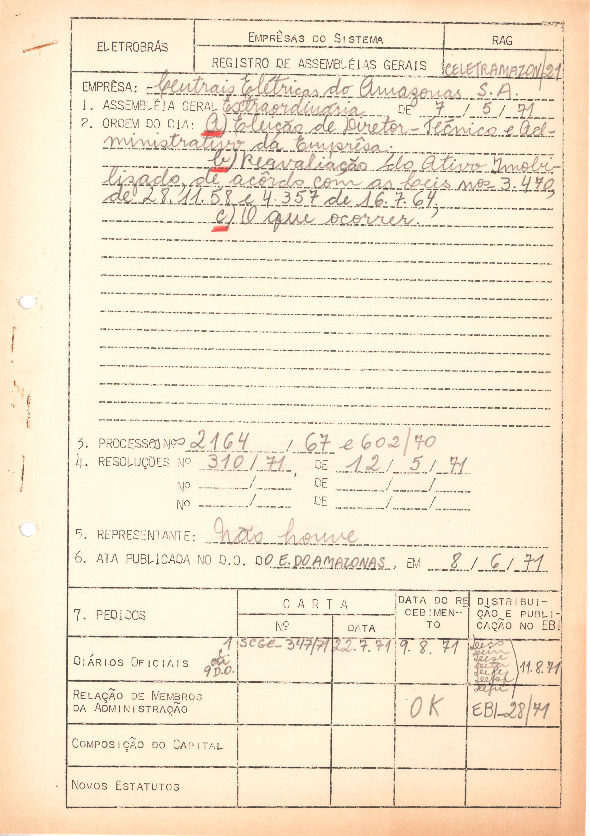 ELETROBRÁS
EMPRÊSAS DO SISTEMA
RAG
REGISTRO DE ASSEMBLÉIAS GERAIS
CELETRAMAZON/21
EMPRÊSA: Centrais Elétricas do Amazonas S.A.
1. ASSEMBLÉIA GERAL Extraordinária DE 7 / 5 / 71
2. ORDEM DO DIA: a) Eleição de Diretor-Técnico e Ad-
ministrativo da Emprêsa.
b) Reavaliação do Ativo Imobi-
lizado, de acôrdo com as Leis nos 3.470,
de 28.11.58 e 4.357 de 16.7.64.
c) O que ocorrer.
3. PROCESSO Nºs 2164 / 67 e 602/70
4. RESOLUÇÕES Nº 310/71, DE 12 / 5 / 71
Nº / DE / /
Nº / DE / /
5. REPRESENTANTE: Não houve
6. ATA PUBLICADA NO D.O. DO E. DO AMAZONAS, EM 8 / 6 / 71
7. PEDIDOS
CARTA
Nº
DATA
DATA DO RE
CEBIMEN-
TO
DISTRIBUI-
ÇÃO E PUBLI-
CAÇÃO NO EBI
DIÁRIOS OFICIAIS
1
9 D.O.
SCGE-347/71
22.7.71
9.8.71
11.8.71
RELAÇÃO DE MEMBROS
DA ADMINISTRAÇÃO
OK
EBI-28/71
COMPOSIÇÃO DO CAPITAL
NOVOS ESTATUTOS